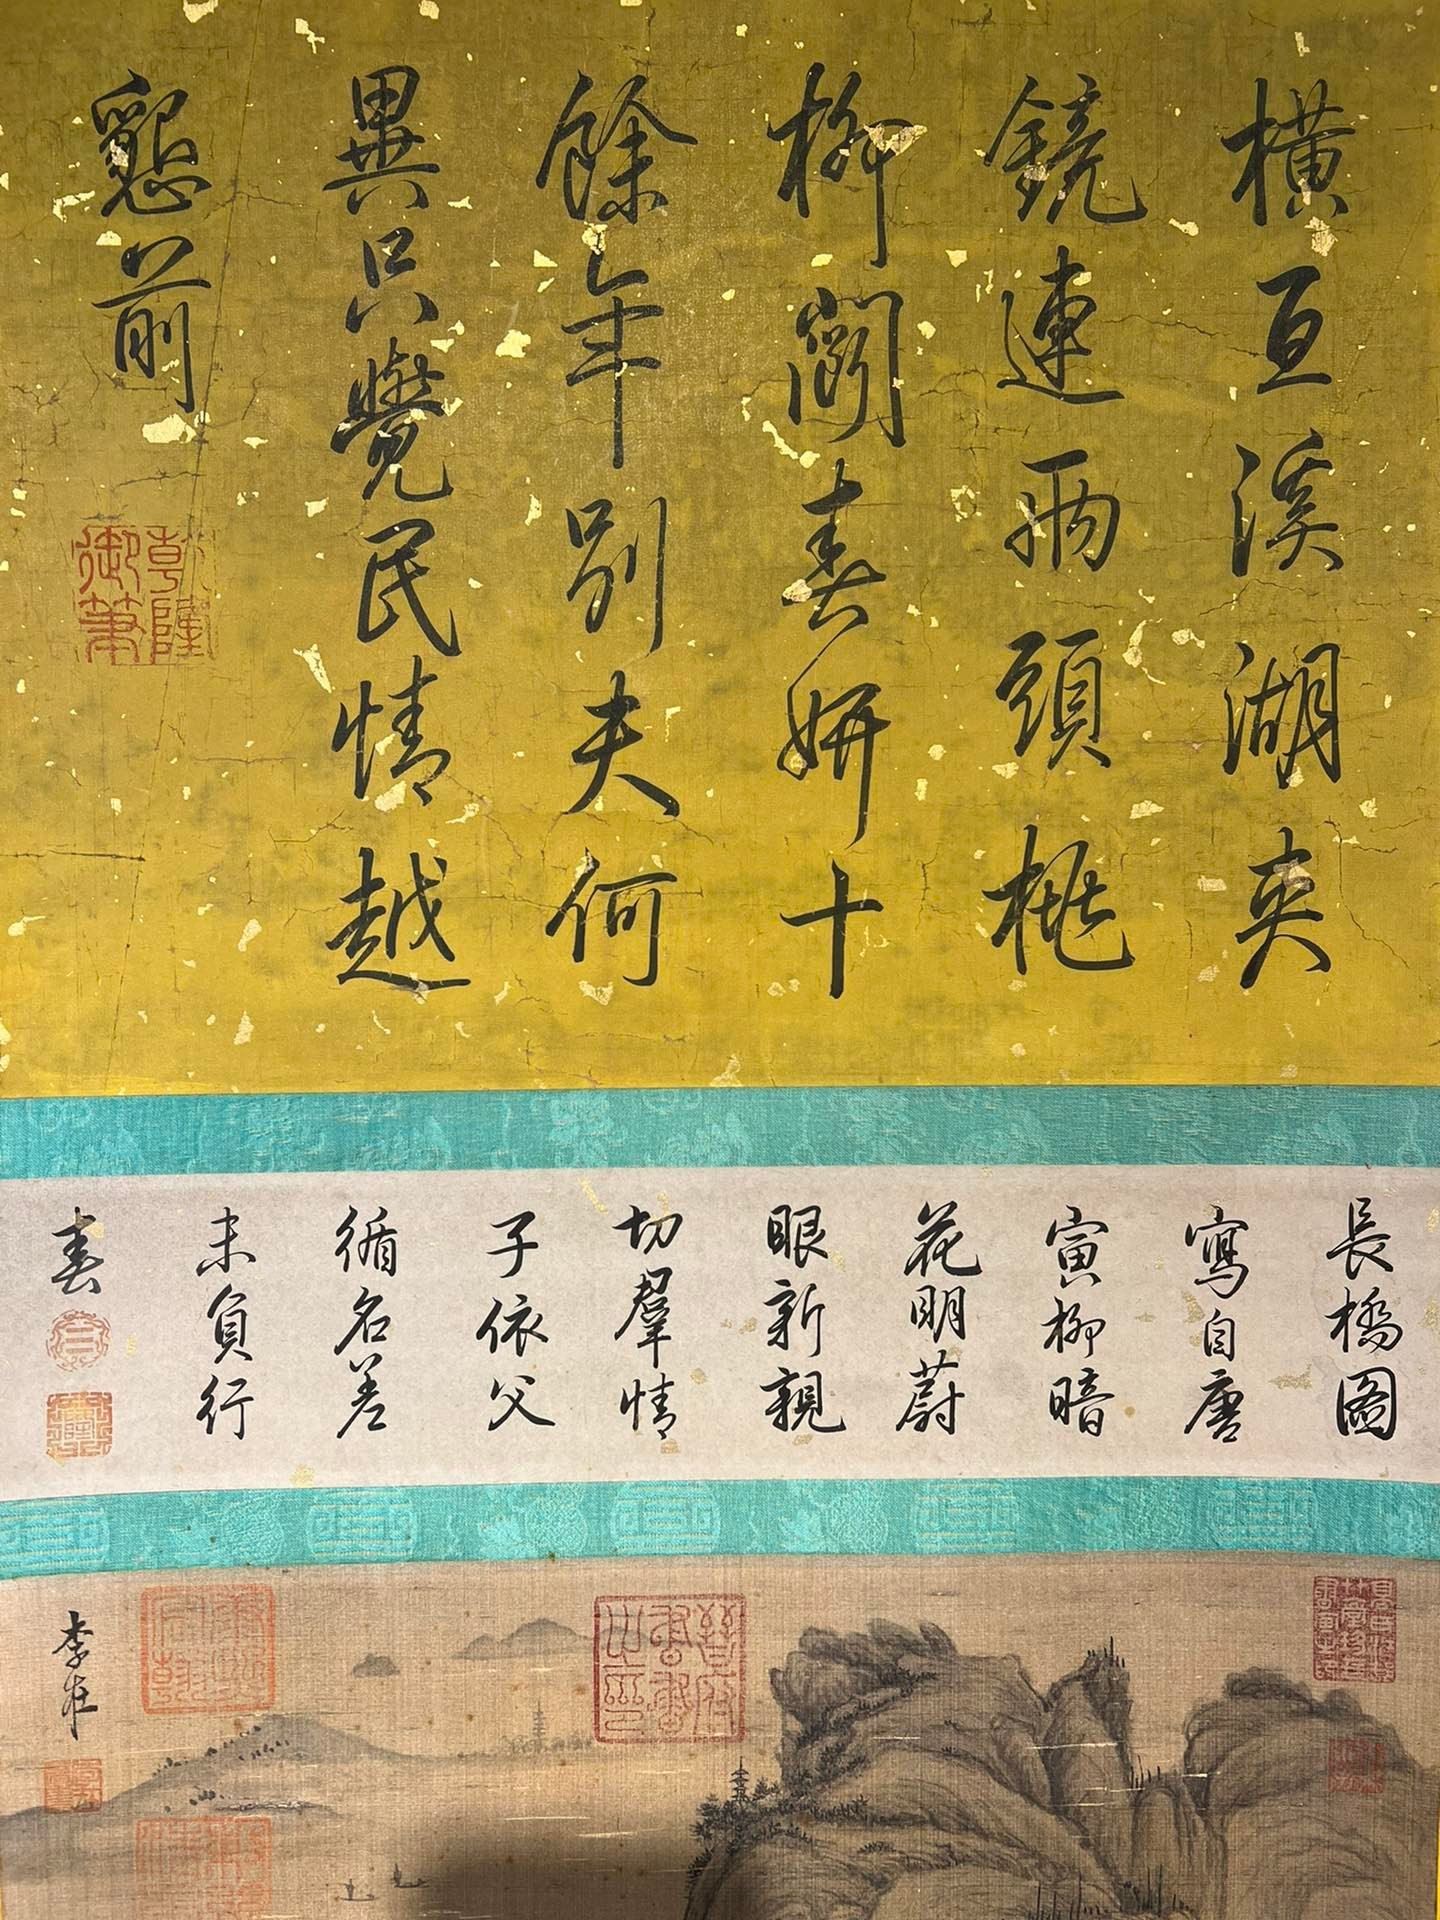 橫亙溪湖夾
鏡連兩頭桃
柳鬬春妍十
餘年別夫何
異只覺民情越
懇前
乾隆
御筆
長橋圖
寫自唐
寅柳暗
花明蔚
眼新親
切羣情
子依父
循名差
未負行
春
李在
晉府
書畫
之印